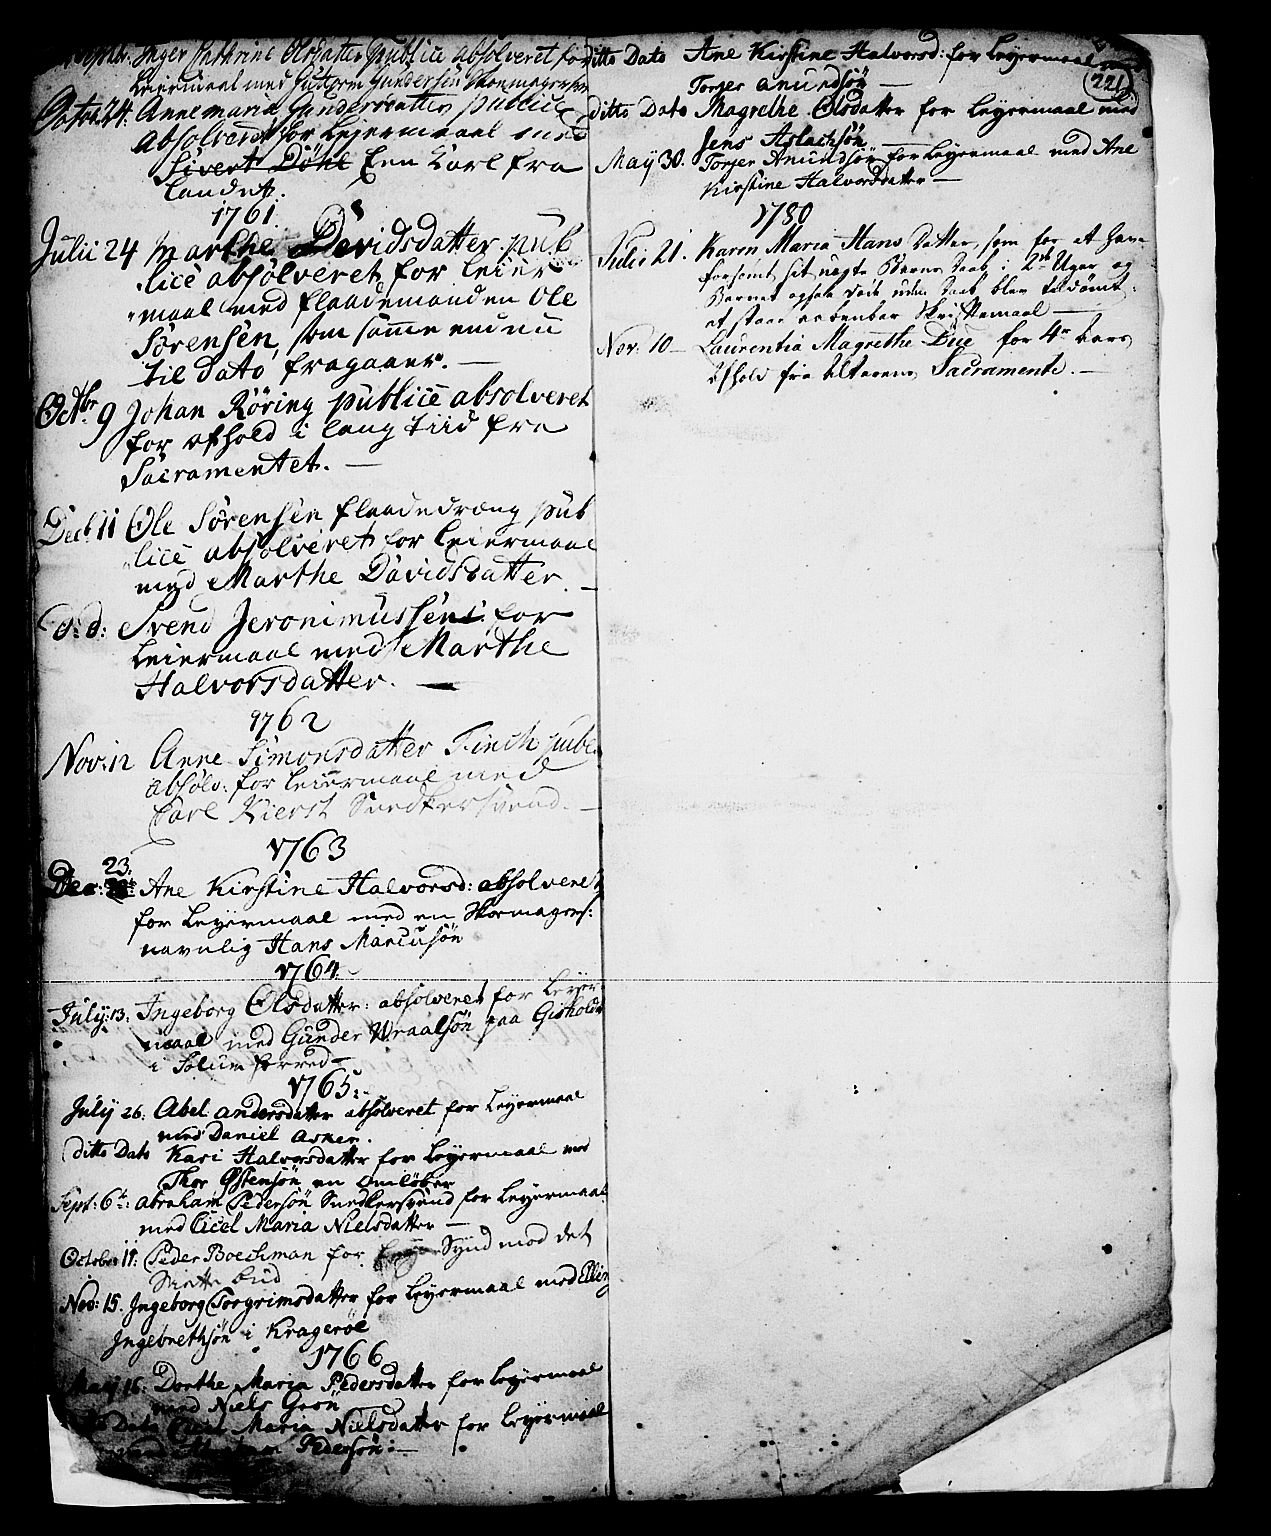 Inger Cathrine Olsdatter publice absolveret for
Leiermaal med Guttorm Gundersen Skoemagersvend
Octob: 24. Annemaria Gundersdatter publice
absolveret for Lejermaal med
Sivert Döhl Een Karl fra
Landet.
1761.
Julii 24 Marthe Davidsdatter pub
lice absolveret for Leier
maal med flaademanden Ole
Sörensen, som samme endnu
til dato fragaaer. —
Octbr. 9 Johan Röring publice absolveret
for afhold i lang tiid fra
Sacramentet. —
Decb: 11 Ole Sörensen flaadedræng pub
lice absolveret for Leiermaal
med Marthe Davidsdatter. —
d: d: Svend Jeronimussen for
Leiermaal med Marthe
Halvorsdatter. —
1762
Nov: 12 Anne Simonsdatter Finch publ.
absolv: for Leiermaal med
Carl Kierst Snedkersvend. —
1763
23.
Dec: Ane Kirstine Halvorsd: absolveret
for Leyermaal med en Skomagers:
navnlig Hans Marcusön
1764.
July: 13: Ingeborg Olsdatter: absolveret for Leyer
maal med Gunder Wraalsön paa Gisholdt
i Solum Herred —
1765:
July 26: Abel andersdatter absolveret for Leyermaal
med Daniel Asker.
ditto Dato Kari Halvorsdatter for Leyermaal med
Thor Östensön en omlöber
Sept: 6te: abraham Pedersön Snedkersvend for Leyermaal
med Cicel Maria Nielsdatter —
October 11: Peder Boechman for Synd mod det
Siette bud
Nov: 15. Ingeborg Torgrimsdatter for Leyermaal med Elling
Ingebrethsön i Kragerøe
1766
May 16: Dorthe Maria Pedersdatter for Leyermaal
med Niels Grön
Dato Cicel Maria Nielsdatter for Leyermaal
med Pedersön: —
221.
ditto Dato Ane Kirstine Halvorsd: for Leyermaal med
Torger Anundsön —
ditto Dato Magrethe Olsdatter for Leyermaal med
Jens Aslachsön —
May 30. Torger Anundsön for Leyermaal med Ane
Kirstine Halvorsdatter —
1780
Julii 21. Karen Maria Hans Datter, som for at have
forsømt sit uægte Barns Daab i 2de Uger og
Barnet ogsaa døde uden Daab blev tildømt
at staae aabenbar Skriftemaal —
Nov: 10 — Laurentia Magrethe Due for 4re Aars
Afhold fra Alterens Sacramente. —